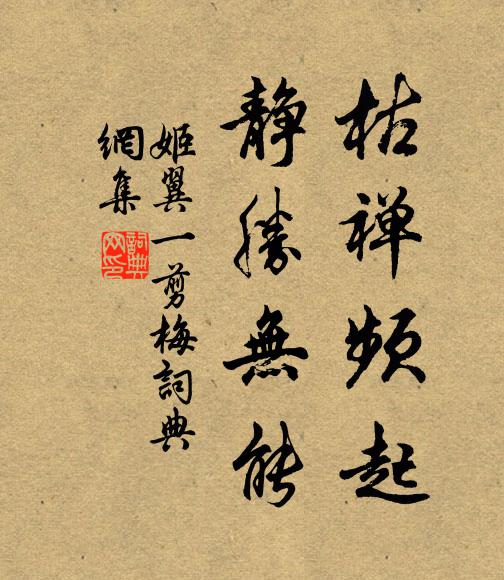 枯禅頻起
静勝無能
姬翼一剪梅詞典
網集
詞典
网印